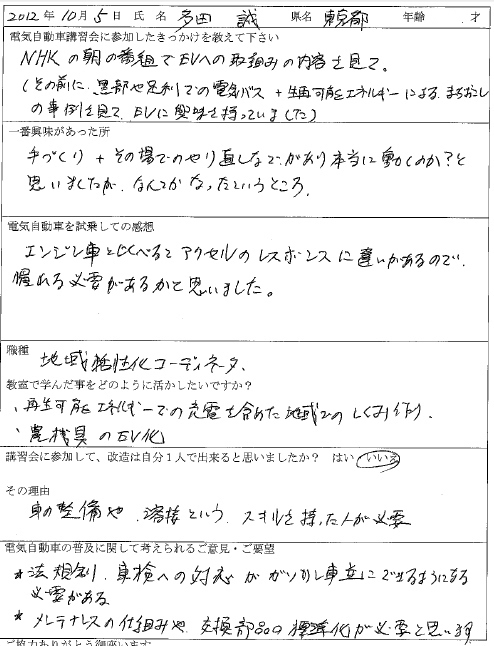 2012年10月5日 氏名 多田 誠 県名 東京都 年齢 才
電気自動車講習会に参加したきっかけを教えて下さい
NHKの朝の番組でEVへの取組みの内容を見て。
(その前に、黒部や足利での電気バス + 再生可能エネルギーによる まちおこし
の事例を見て、EVに興味を持っていました)
一番興味があった所
手づくり + その場でのやり直しなどがあり本当に動くのか?と
思いましたが、なんとかなったというところ。
電気自動車を試乗しての感想
エンジン車とくらべるとアクセルのレスポンスに違いがあるので、
慣れる必要があるかと思いました。
職種 地域活性化コーディネータ、
教室で学んだ事をどのように活かしたいですか?
・再生可能エネルギーでの充電を含めた地域でのしくみ作り、
・農機具のEV化
講習会に参加して、改造は自分1人で出来ると思いましたか? はい・いいえ
その理由
車の整備や、溶接という、スキルを持った人が必要
電気自動車の普及に関して考えられるご意見・ご要望
*法規制、車検への対応がガソリン車並にできるようになる
必要がある
*メンテナンスの仕組みや、交換部品の標準化が必要と思います
ご協力ありがとう御座います